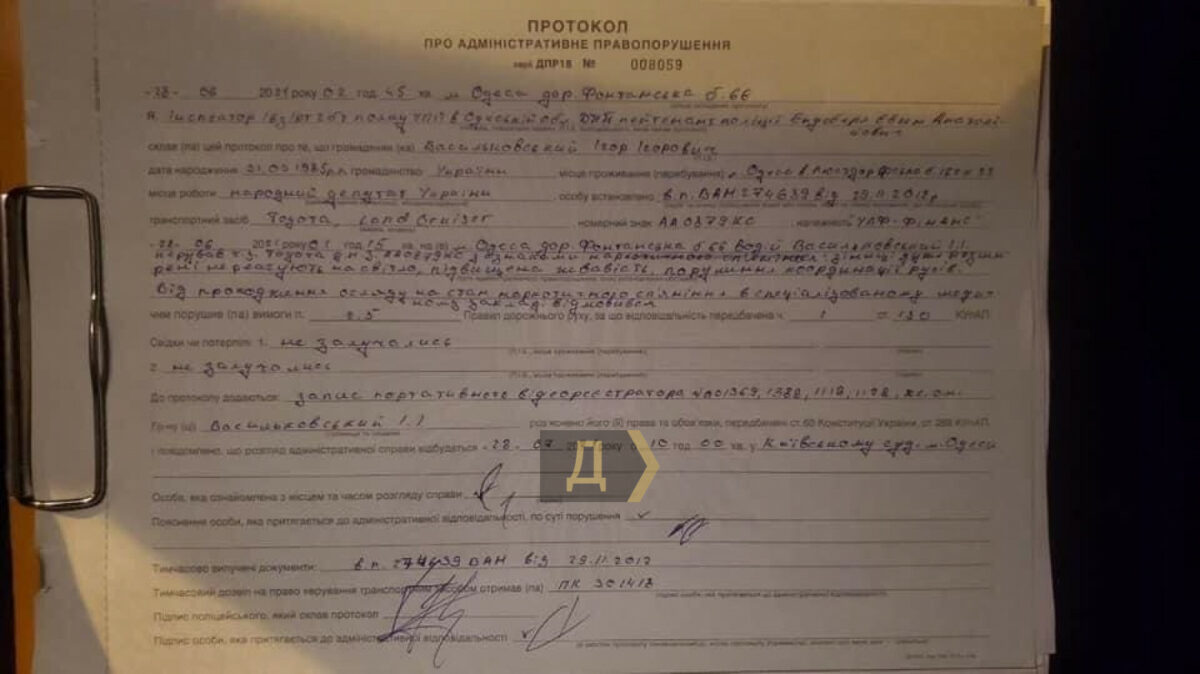 ПРОТОКОЛ
ПРО АДМІНІСТРАТИВНЕ ПРАВОПОРУШЕННЯ
серії ДПР18 № 008059
"28" 06 2021 року 02 год 45 хв м. Одеса дор. Фонтанська б. 66
Я, інспектор полку в Одеській обл. ДПП лейтенант поліції
склав (ла) цей протокол про те, що громадянин (ка) Васильковський Ігор Ігорович
дата народження громадянство України місце проживання (перебування) м. Одеса
місце роботи народний депутат України особу встановлено в.п. ВАН 274639 від 29.11.2012р.
транспортний засіб Тойота, Land Cruizer номерний знак АА0879КС, належність "УЛФ-Фінанс"
"28" 06 2021 року 01 год 15 хв. на (в) м. Одеса дор. Фонтанська б. 66 водій Васильковський І.І.
керував т.з. Тойота д.н.з. АА0879КС з ознаками наркотичного сп'яніння: зіниці дуже розши
рені не реагують на світло, підвищена жвавість, порушення координації рухів.
Від проходження огляду на стан наркотичного сп'яніння в спеціалізованому медич
ному закладі відмовився
чим порушив (ла) вимоги п. 2.5 Правил дорожнього руху, за що відповідальність передбачена ч. 1 ст. 130 КУпАП
Свідки чи потерпілі: 1. не залучались
(П.І.Б., місце проживання (перебування)) (підпис)
2. не залучались
(П.І.Б., місце проживання (перебування)) (підпис)
До протоколу додаються: запис портативного відеореєстратора
Гр-ну (ці) Васильковський І.І роз'яснено його (її) права та обов'язки, передбачені ст. 63 Конституції України, ст. 268 КУпАП
і повідомлено, що розгляд адміністративної справи відбудеться "28" 07 року о 10 год 00 хв. у Київському суд. м. Одеси
Д
Особа, яка ознайомлена з місцем та часом розгляду справи
Пояснення особи, яка притягається до адміністративної відповідальності, по суті порушення
Тимчасово вилучені документи: в.п. 274639 ВАН від 29.11.2012
Тимчасовий дозвіл на право керування транспортним засобом отримав (ла) ПК 301418
Підпис поліцейського, який склав протокол
Підпис особи, яка притягається до адміністративної відповідальності